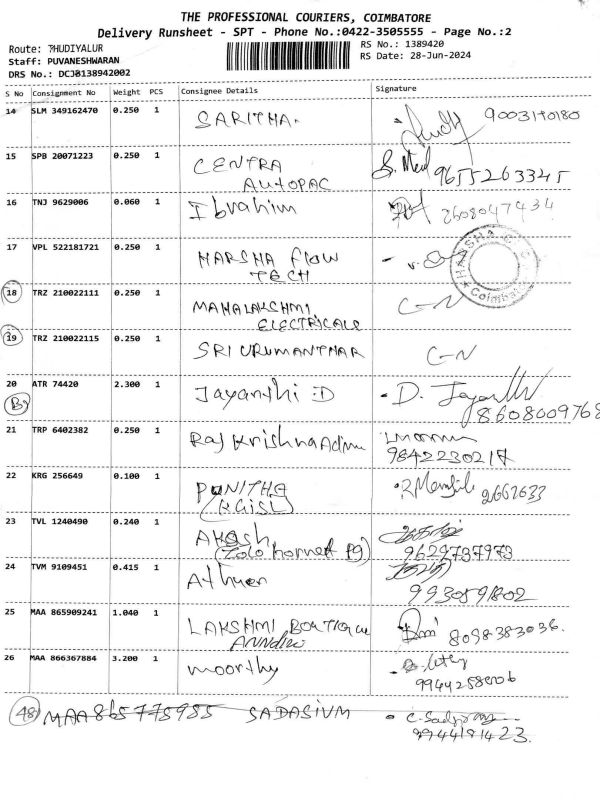 THE PROFESSIONAL COURIERS, COIMBATORE
Delivery Runsheet - SPT - Phone No.:0422-3505555 - Page No.:2
Route: THUDIYALUR
RS No.: 1389420
Staff: PUVANESHWARAN
RS Date: 28-Jun-2024
DRS No.: DCJ8138942002
S No Consignment No Weight PCS Consignee Details Signature
14 SLM 349162470 0.250 1 SARITHA. 9003140180
15 SPB 20071223 0.250 1 CENTRA AUTOPAC 9655263345
16 TNJ 9629006 0.060 1 Ibrahim 2608047434
17 VPL 522181721 0.250 1 HARSHA flow TECH
HARSHA Coimbatore
18 TRZ 210022111 0.250 1 MAHALAKSHMI ELECTRICALS C-N
19 TRZ 210022115 0.250 1 SRI URUMANTHAR C-N
20 ATR 74420 2.300 1 Jayanthi :D D. Jayanthi
8608009768
21 TRP 6402382 0.250 1 Raj Krishna
9842230217
22 KRG 256649 0.100 1 PUNITHA (KGISL) 2662633
23 TVL 1240490 0.240 1 AKash (Zolo hornett Pg)
9629737973
24 TVM 9109451 0.415 1
9930591802
25 MAA 865909241 1.040 1 LAKSHMI BOUTIQUE 8098383036.
26 MAA 866367884 3.200 1 moorthy
48 MAA 865775955 SADASIVM C.
9944191423.